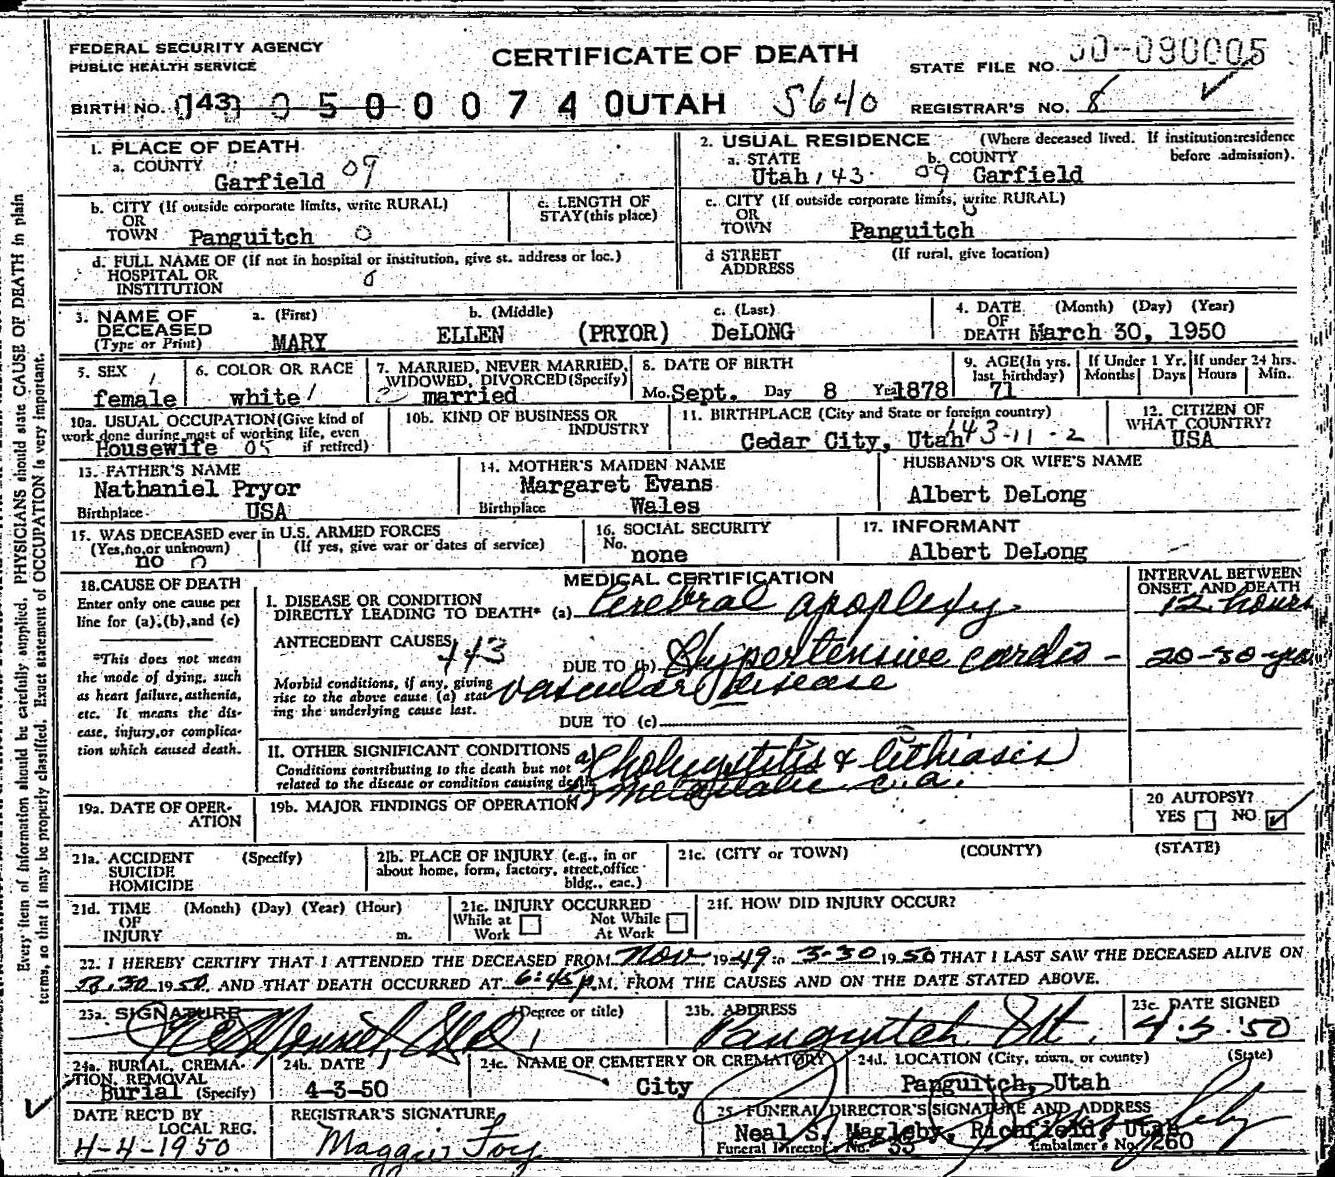 FEDERAL SECURITY AGENCY
PUBLIC HEALTH SERVICE
CERTIFICATE OF DEATH
STATE FILE NO. 50-090005
BIRTH NO. 143 0 5 0 0 0 7 4 0 UTAH 5640 REGISTRAR'S NO. 8
1. PLACE OF DEATH
a. COUNTY
Garfield 09
2. USUAL RESIDENCE (Where deceased lived. If institution:residence before admission).
a. STATE b. COUNTY
Utah 143 09 Garfield
b. CITY (If outside corporate limits, write RURAL)
OR
TOWN Panguitch 0
c. LENGTH OF
STAY (this place)
c. CITY (If outside corporate limits, write RURAL)
OR
TOWN Panguitch
d. FULL NAME OF (If not in hospital or institution, give st. address or loc.)
HOSPITAL OR
INSTITUTION
d STREET (If rural, give location)
ADDRESS
3. NAME OF DECEASED
(Type or Print)
a. (First) b. (Middle) c. (Last)
MARY ELLEN (PRYOR) DeLONG
4. DATE (Month) (Day) (Year)
OF
DEATH March 30, 1950
5. SEX
female 1
6. COLOR OR RACE
white 1
7. MARRIED, NEVER MARRIED,
WIDOWED, DIVORCED (Specify)
married
8. DATE OF BIRTH
Mo. Sept. Day 8 Yr. 1878
9. AGE (In yrs.
last birthday)
71
If Under 1 Yr.
Months Days
If under 24 hrs.
Hours Min.
10a. USUAL OCCUPATION (Give kind of
work done during most of working life, even
if retired)
Housewife 05
10b. KIND OF BUSINESS OR
INDUSTRY
11. BIRTHPLACE (City and State or foreign country)
Cedar City, Utah 143-11-2
12. CITIZEN OF
WHAT COUNTRY?
USA
13. FATHER'S NAME
Nathaniel Pryor
Birthplace USA
14. MOTHER'S MAIDEN NAME
Margaret Evans
Birthplace Wales
HUSBAND'S OR WIFE'S NAME
Albert DeLong
15. WAS DECEASED ever in U.S. ARMED FORCES
(Yes,no,or unknown) (If yes, give war or dates of service)
no 0
16. SOCIAL SECURITY
No. none
17. INFORMANT
Albert DeLong
18. CAUSE OF DEATH
Enter only one cause per
line for (a),(b),and (c)
*This does not mean
the mode of dying, such
as heart failure, asthenia,
etc. It means the dis-
ease, injury, or complica-
tion which caused death.
MEDICAL CERTIFICATION
I. DISEASE OR CONDITION
DIRECTLY LEADING TO DEATH* (a) Cerebral apoplexy
ANTECEDENT CAUSES 443
DUE TO (b) Hypertensive cardio-
vascular disease
Morbid conditions, if any, giving
rise to the above cause (a) stat-
ing the underlying cause last.
DUE TO (c)
II. OTHER SIGNIFICANT CONDITIONS
Conditions contributing to the death but not
related to the disease or condition causing death
a) Cholecystitis & lithiasis
c.a.
INTERVAL BETWEEN
ONSET AND DEATH
12 hours
20-30 years
19a. DATE OF OPER-
ATION
19b. MAJOR FINDINGS OF OPERATION
20 AUTOPSY?
YES NO ✓
21a. ACCIDENT (Specify)
SUICIDE
HOMICIDE
21b. PLACE OF INJURY (e.g., in or
about home, form, factory, street,office
bldg., eac.)
21c. (CITY or TOWN) (COUNTY) (STATE)
21d. TIME (Month) (Day) (Year) (Hour)
OF
INJURY m.
21e. INJURY OCCURRED
While at Work Not While At Work
21f. HOW DID INJURY OCCUR?
22. I HEREBY CERTIFY THAT I ATTENDED THE DECEASED FROM Nov 1949 to 3-30 1950 THAT I LAST SAW THE DECEASED ALIVE ON
3.30 1950, AND THAT DEATH OCCURRED AT 6:45 P.M. FROM THE CAUSES AND ON THE DATE STATED ABOVE.
23a. SIGNATURE (Degree or title)
23b. ADDRESS
Panguitch Ut.
23c. DATE SIGNED
4.3.'50
24a. BURIAL, CREMA-
TION, REMOVAL
Burial (Specify)
24b. DATE
4-3-50
24c. NAME OF CEMETERY OR CREMATORY
City
24d. LOCATION (City, town, or county) (State)
Panguitch, Utah
DATE REC'D BY
LOCAL REG.
4-4-1950
REGISTRAR'S SIGNATURE
Maggie Foy
25 FUNERAL DIRECTOR'S SIGNATURE AND ADDRESS
Neal S. Magleby, Richfield, Utah
Funeral Director's No. 35 Embalmer's No. 260
Every item of information should be carefully supplied. PHYSICIANS should state CAUSE OF DEATH in plain
terms, so that it may be properly classified. Exact statement of OCCUPATION is very important.